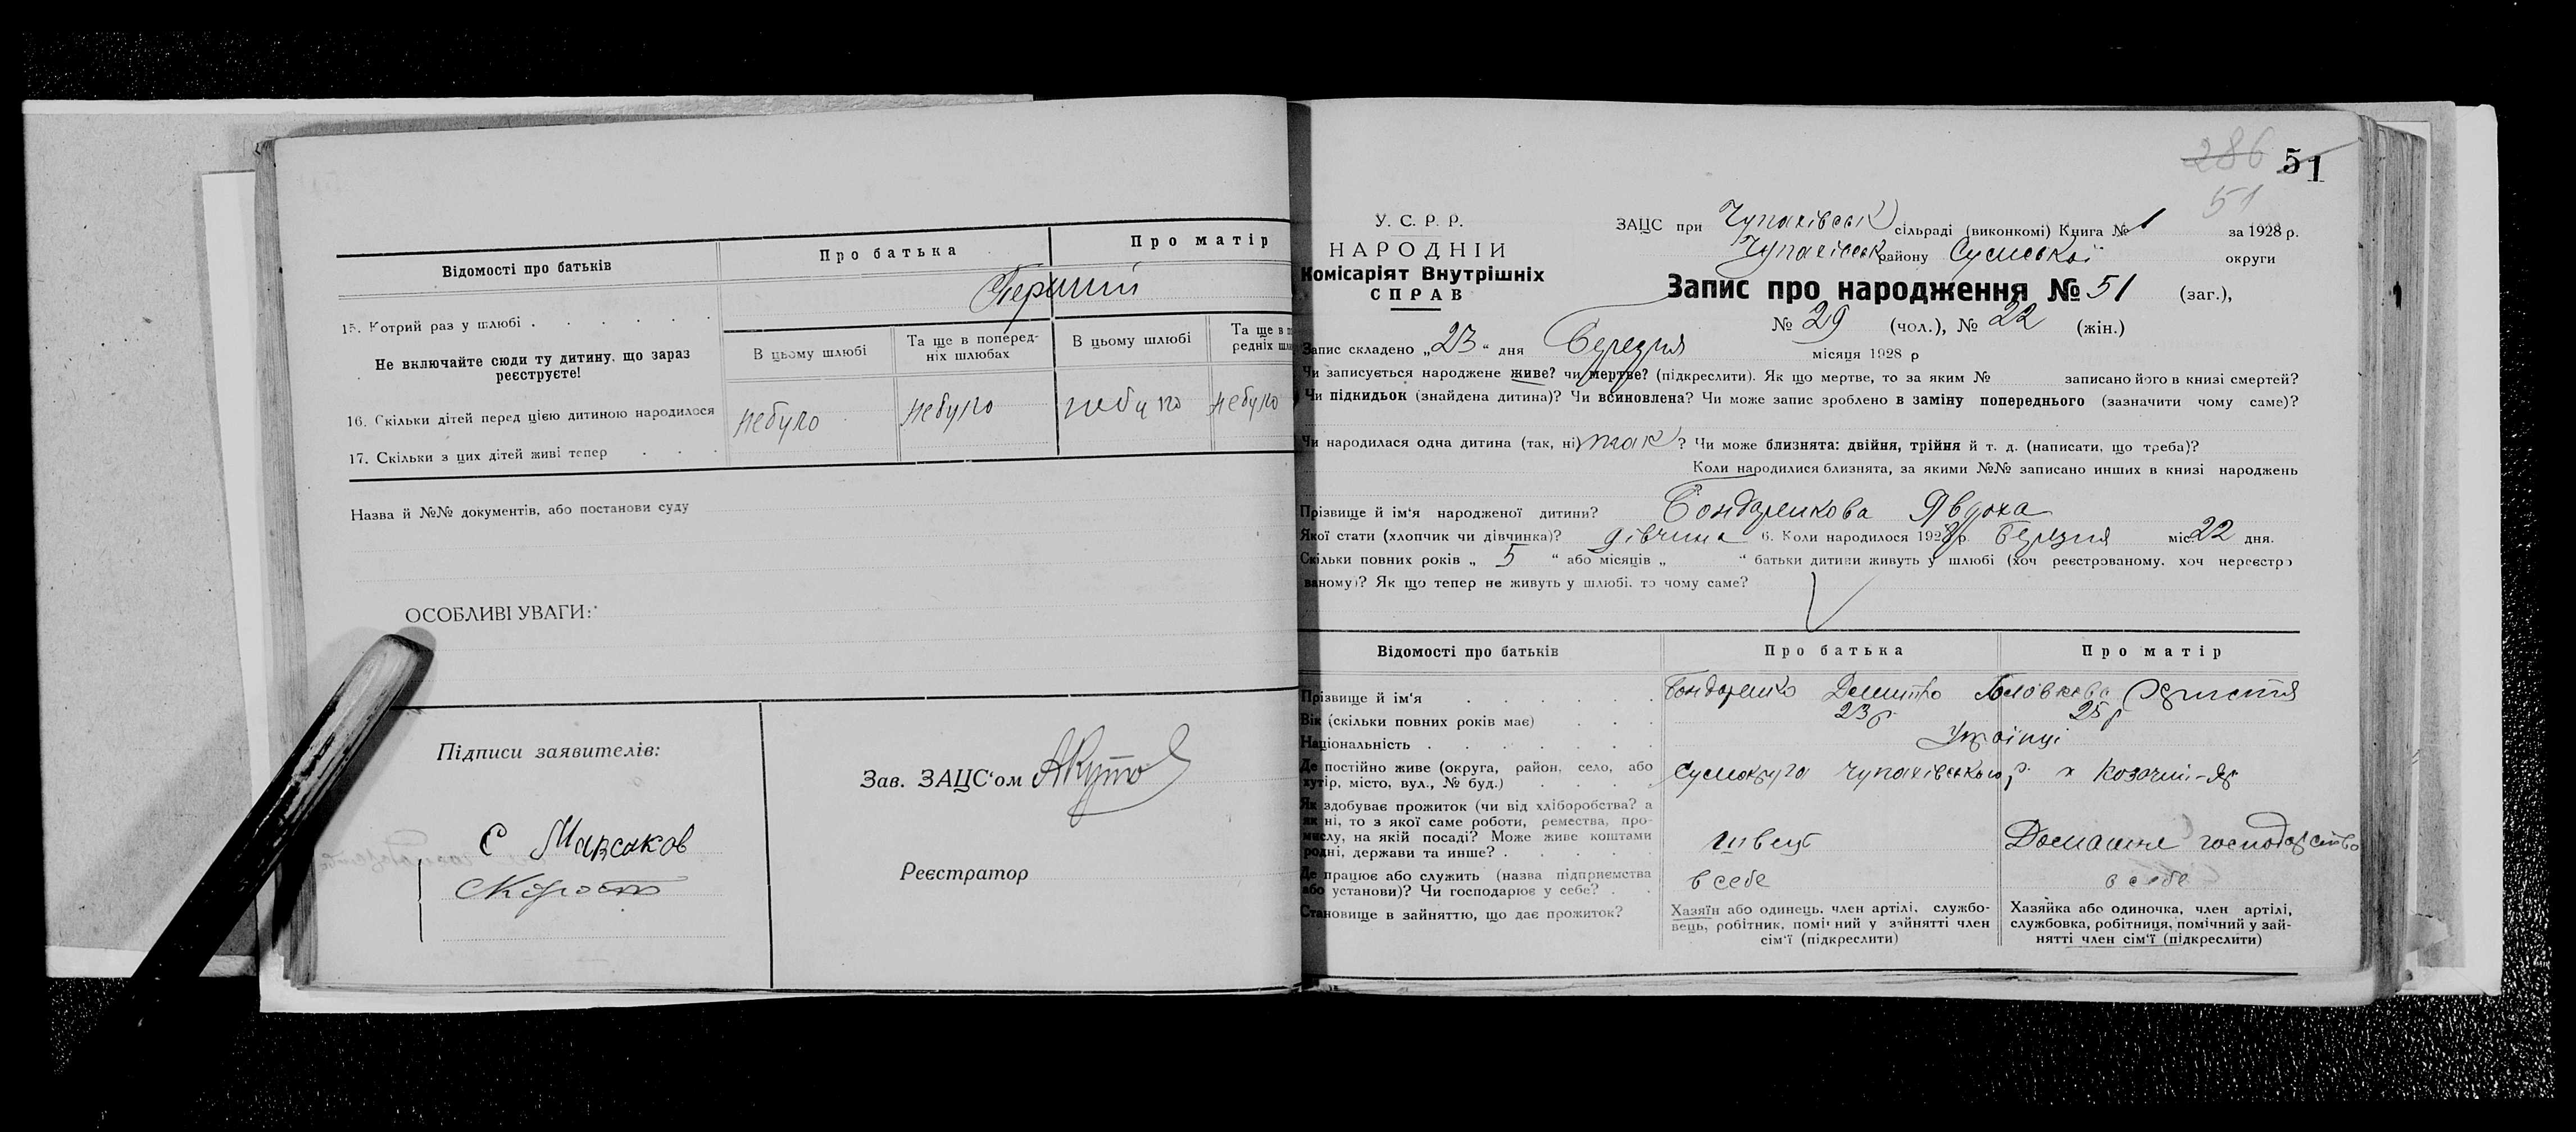 Відомості про батьків
Про батька
Про матір
15. Котрий раз у шлюбі
Перший
Не включайте сюди ту дитину, що зараз реєструєте!
В цьому шлюбі
Та ще в поперед-
ніх шлюбах
В цьому шлюбі
Та ще в по
редніх шлю
16. Скільки дітей перед цією дитиною народилося
небуло
небуло
небуло
небуло
17. Скільки з цих дітей живі тепер
Назва й №№ документів, або постанови суду
ОСОБЛИВІ УВАГИ:
Підписи заявителів:
С
Зав. ЗАЦС'ом
Реєстратор
286 51
51
У. С. Р. Р.
НАРОДНІЙ
Комісаріят Внутрішніх
СПРАВ
ЗАЦС при Чупахівськ сільраді (виконкомі) Книга № 1 за 1928 р.
Чупахівськ району Сумської округи
Запис про народження № 51 (заг.),
№ 29 (чол.), № 22 (жін.)
Запис складено „23“ дня Березня місяця 1928 р
Чи записується народжене живе? чи мертве? (підкреслити). Як що мертве, то за яким № записано його в книзі смертей?
Чи підкидьок (знайдена дитина)? Чи всиновлена? Чи може запис зроблено в заміну попереднього (зазначити чому саме)?
Чи народилася одна дитина (так, ні) так ? Чи може близнята: двійня, трійня й т. д. (написати, що треба)?
Коли народилися близнята, за якими №№ записано инших в книзі народжень
Прізвище й ім'я народженої дитини? Бондаренкова Явдоха
Якої стати (хлопчик чи дівчинка)? дівчина 6. Коли народилося 1928 р. Березня міс. 22 дня.
Скільки повних років „ 5 “ або місяців „ “ батьки дитини живуть у шлюбі (хоч реєстрованому, хоч нереєстро
ваному)? Як що тепер не живуть у шлюбі, то чому саме?
Відомості про батьків
Про батька
Про матір
Прізвище й ім'я
Бондаренко Дмитро
Христя
Вік (скільки повних років має)
23 р
25 р
Національність
Українці
Де постійно живе (округа, район, село, або
хутір, місто, вул., № буд.)
Сумокруга Чупахівського р. х Козачий-Яр
Як здобуває прожиток (чи від хліборобства? а
як ні, то з якої саме роботи, ремества, про-
мислу, на якій посаді? Може живе коштами
родні, держави та инше?
швець
Домашнє господарство
Де працює або служить (назва підприємства
або установи)? Чи господарює у себе?
в себе
в себе
Становище в зайняттю, що дає прожиток?
Хазяїн або одинець, член артілі, службо-
вець, робітник, помічний у зайнятті член
сім'ї (підкреслити)
Хазяйка або одиночка, член артілі,
службовка, робітниця, помічний у зай-
нятті член сім'ї (підкреслити)